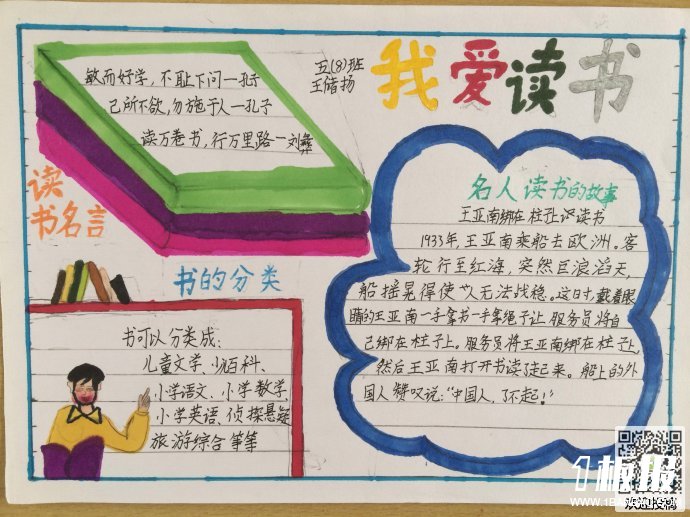 我爱读书
五(8)班
王储扬
敏而好学，不耻下问—孔子
己所不欲，勿施于人—孔子
读万卷书，行万里路—刘彝
读
书名言
书的分类
书可以分类成：
儿童文学、少儿百科、
小学语文、小学数学、
小学英语、侦探悬疑
旅游综合等等
名人读书的故事
王亚南绑在柱上读书
1933年，王亚南乘船去欧洲。客
轮行至红海，突然巨浪滔天，
船摇晃得使人无法战稳。这日寸，戴着眼
睛的王亚南一手拿书一手拿绳子让服务员将自
己绑在柱子上。服务员将王亚南绑在柱子上，
然后王亚南打开书读了起来。船上的外
国人赞叹说：“中国人，了不起！”
1板报
欢迎投稿